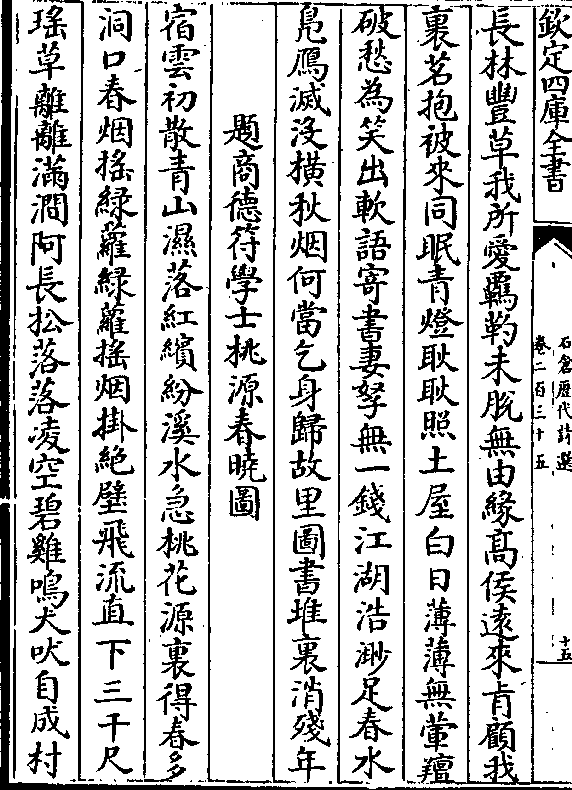 欽定四庫全書
石倉歷代詩選
卷二百三十五
十五
長林豐草我所愛羈靮未脫無由緣髙侯逺來肯顧我
裹茗抱被來同眠青燈耿耿照土屋白日薄薄無葷羶
破愁為笑出軟語寄書妻孥無一錢江湖浩渺足春水
鳬鴈滅没横秋烟何當乞身歸故里圖書堆裏消殘年
題商德符學士桃源春曉圖
宿雲初散青山濕落紅繽紛溪水急桃花源裏得春多
洞口春烟揺緑蘿緑蘿揺烟掛絶壁飛流直下三千尺
瑤草離離滿澗阿長松落落凌空碧雞鳴犬吠自成村